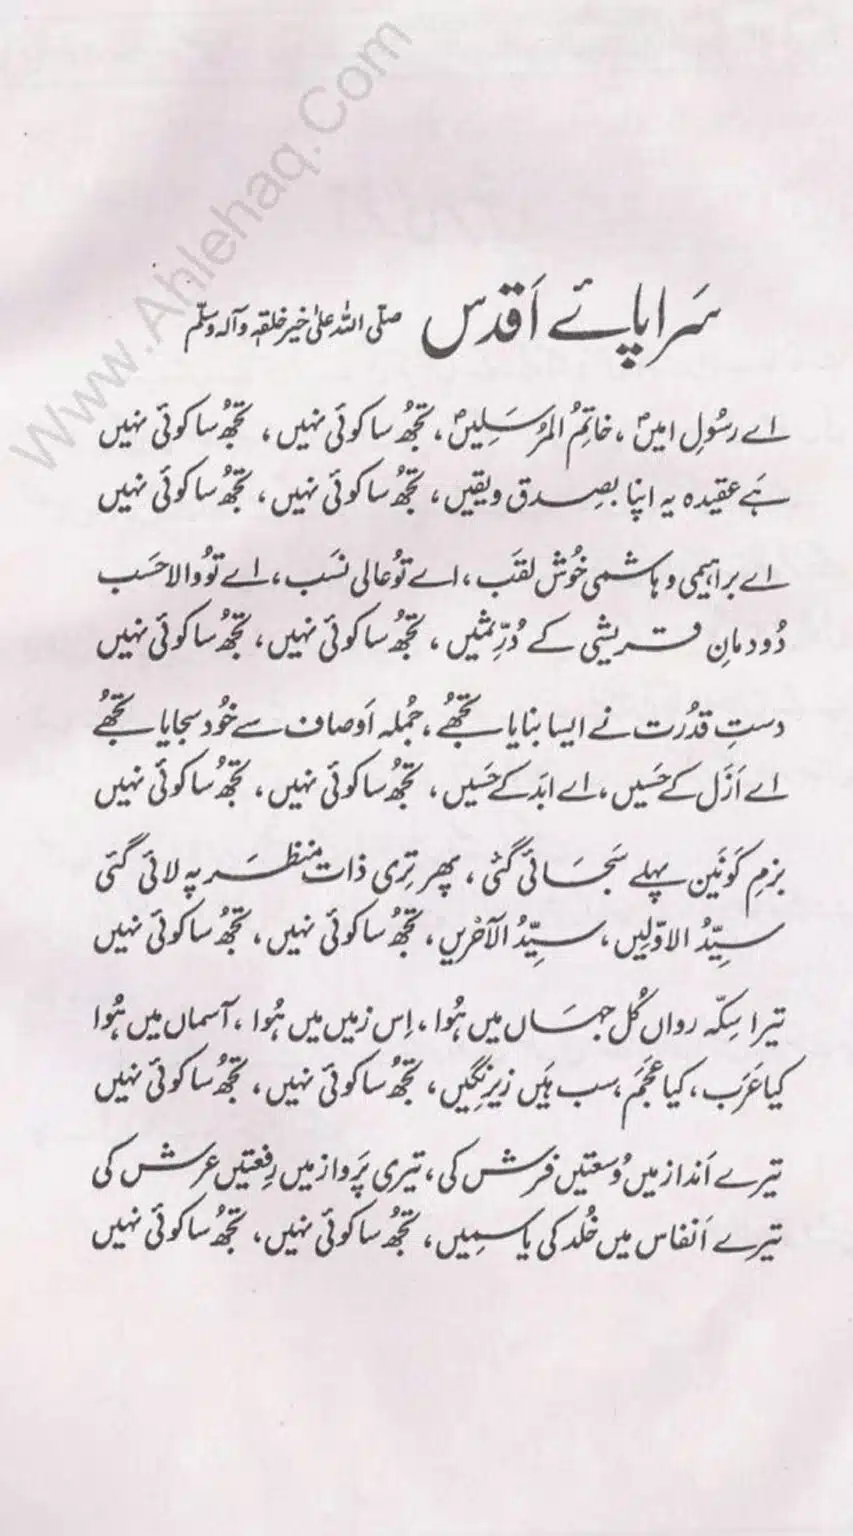 Www.Ahlehaq.Com
سَراپائے اَقدس صلّی اللہ علیٰ خیر خلقہٖ وآلہٖ وسلّم
اے رسُولِ امیںؐ ، خاتمُ المرُسَلیںؐ، تجھُ سا کوئی نہیں ، تجھُ سا کوئی نہیں
ہَے عقیدہ یہ اپنا بصِدق ویقیں ، تجھُ سا کوئی نہیں ، تجھُ سا کوئی نہیں
اے براہیمی و ہاشمی خُوش لقَب ، اے تُو عالی نسَب ، اے تُو والا حسَب
دُودمانِ قریشی کے دُرِّ ثمیں ، تجھُ سا کوئی نہیں ، تجھُ سا کوئی نہیں
دستِ قدُرت نے ایسا بنایا تجھُے ، جُملہ اَوصاف سے خُود سجایا تجھُے
اے اَزَل کے حَسیں ، اے ابَد کے حَسیں ، تجھُ سا کوئی نہیں ، تجھُ سا کوئی نہیں
بزمِ کَونَین پہلے سَجَائی گئی ، پھر تِری ذات منظَر پہ لائی گئی
سیِّدُ الاوّلِیں ، سیِّدُ الآخرِیں ، تجھُ سا کوئی نہیں ، تجھُ سا کوئی نہیں
تیرا سِکّہ رواں کُل جہَاں میں ہُوا ، اِس زمیں میں ہُوا ، آسماں میں ہُوا
کیا عَرَب ، کیا عجَمَ ، سب ہَیں زیرِ نگیں ، تجھُ سا کوئی نہیں ، تجھُ سا کوئی نہیں
تیرے اَنداز میں وُسعتیں فرش کی ، تیری پَرواز میں رِفعتیں عرش کی
تیرے اَنفاس میں خُلد کی یاسمِیں ، تجھُ سا کوئی نہیں ، تجھُ سا کوئی نہیں